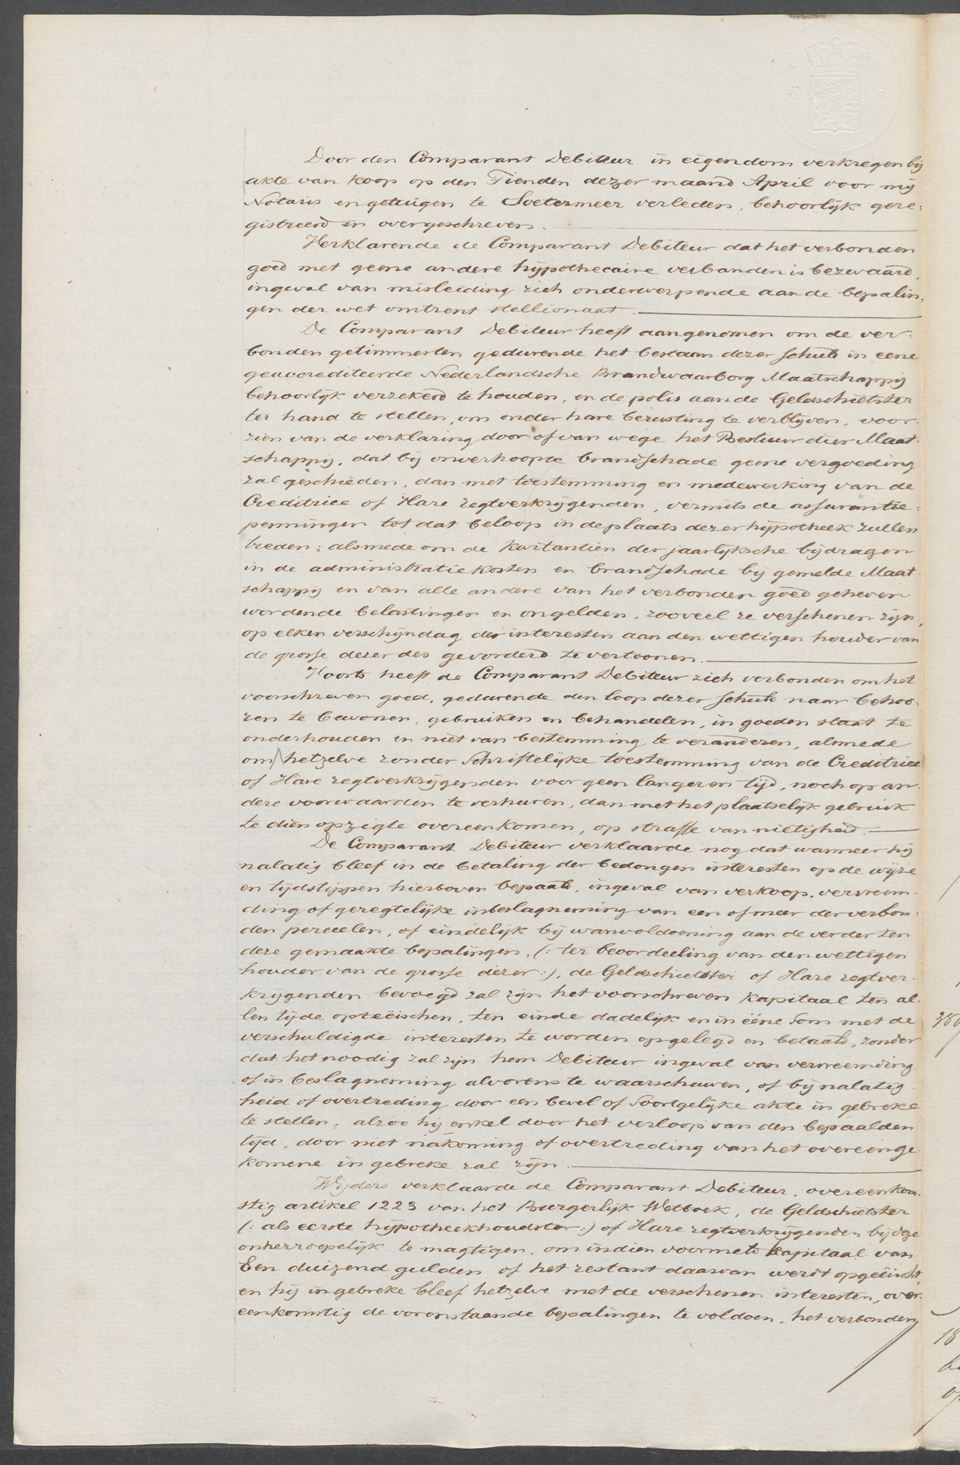 Door den Comparant Debiteur in eigendom verkregen bij
akte van koop op den Tienden dezer maand April voor mij
Notaris en getuigen te Soetermeer verleden, behoorlijk gere-
gistreerd en overgeschreven.
Verklarende de Comparant Debiteur dat het verbonden
goed met geene andere hypothecaire verbanden is bezwaard,
ingeval van misleiding zich onderwerpende aan de bepalin-
gen der wet omtrent stellionaat.
De Comparant Debiteur heeft aangenomen om de ver-
bonden getimmerten gedurende het bestaan dezer schuld in eene
geaccrediteerde Nederlandsche Brandwaarborg Maatschappij
behoorlijk verzekerd te houden, en de polis aan de Geldschietster
ter hand te stellen, om onder hare berusting te verblijven, voor-
zien van de verklaring door of van wege het Bestuur dier Maat-
schappij, dat bij onverhoopte brandschade geene vergoeding
zal geschieden, dan met toestemming en medewerking van de
Creditrice of Hare regtverkrijgenden, vermits de assurantie-
penningen tot dat beloop in de plaats dezer hypotheek zullen
treden; alsmede om de kwitantien der jaarlijksche bijdragen
in de administratiekosten en brandschade bij gemelde Maat-
schappij en van alle andere van het verbonden goed geheven
wordende belastingen en ongelden, zooveel ze verschenen zijn,
op elken verschijndag der interesten aan den wettigen houder van
de grosse dezer des gevorderd te vertoonen.
Voorts heeft de Comparant Debiteur zich verbonden om het
voorschreven goed, gedurende den loop dezer schuld naar behoo-
ren te bewonen, gebruiken en behandelen, in goeden staat te
onderhouden en niet van bestemming te veranderen, alsmede
om hetzelve zonder Schriftelijke toestemming van de Creditrice
of Hare regtverkrijgenden voor geen langeren tijd, noch op an-
dere voorwaarden te verhuren, dan met het plaatselijk gebruik
te dien opzigte overeenkomen, op straffe van nietigheid.
De Comparant Debiteur verklaarde nog dat wanneer hij
nalatig bleef in de betaling der bedongen interesten op de wijze
en tijdstippen hierboven bepaald, ingeval van verkoop, vervreem-
ding of geregtelijke inbeslagneming van een of meer der verbon-
den perceelen, of eindelijk bij wanvoldoening aan de verder ten
deze gemaakte bepalingen, (: ter beoordeeling van den wettigen
houder van de grosse dezer :), de Geldschietster of Hare regtver-
krijgenden bevoegd zal zijn het voorschreven kapitaal ten al-
len tijde opteëischen, ten einde dadelijk en in ééne Som met de
verschuldigde interesten te worden opgelegd en betaald, zonder
dat het noodig zal zijn hem Debiteur ingeval van vervreemding
of in beslagneming alvorens te waarschuwen, of bij nalatig-
heid of overtreding door een bevel of Soortgelijke akte in gebreke
te stellen, alzoo hij enkel door het verloop van den bepaalden
tijd, door niet nakoming of overtreding van het overeenge-
komene in gebreke zal zijn.
Wijders verklaarde de Comparant Debiteur, overeenkom-
stig artikel 1223 van het Burgerlijk Wetboek, de Geldschietster
(: als eerste hypotheekhoudster :) of Hare regtverkrijgenden bij deze
onherroepelijk te magtigen, om indien voormeld kapitaal van
Een duizend gulden of het restant daarvan werdt opgeëischt,
en hij ingebreke bleef hetzelve met de verschenen interesten, over-
eenkomstig de vorenstaande bepalingen te voldoen, het verbonden